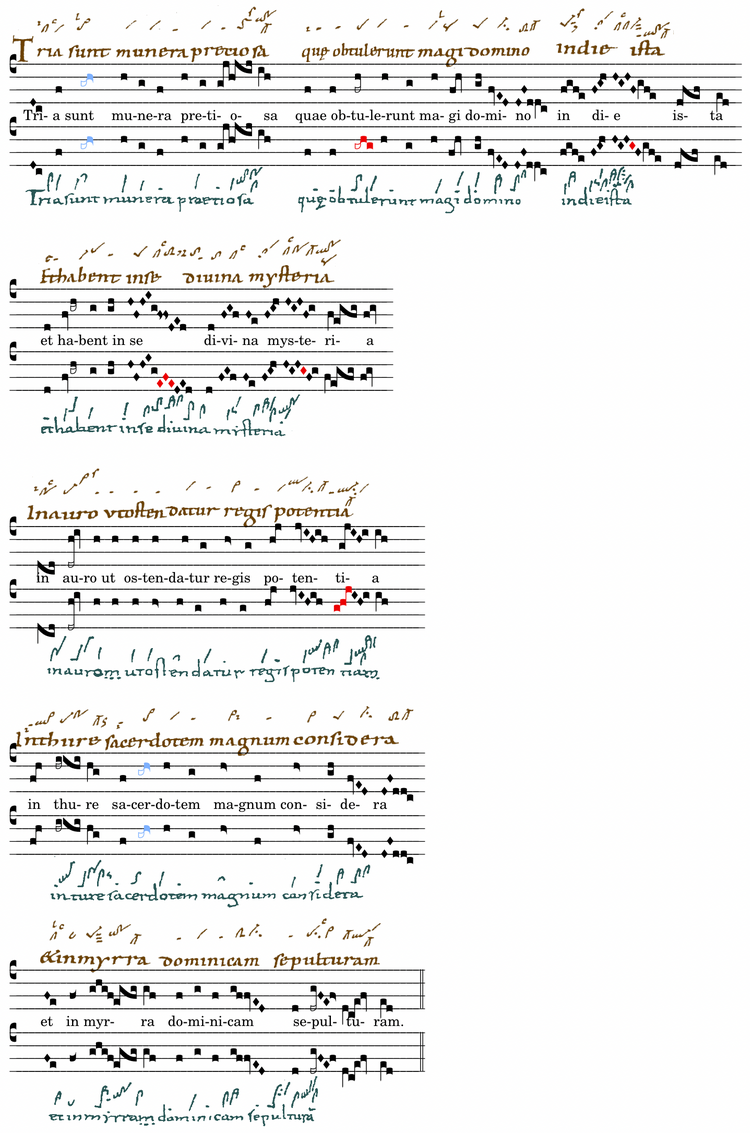 Tria sunt munera pretiosa quę obtulerunt magi domino in die ista
Tri- a sunt mu-ne-ra pre-ti- o- sa quae ob-tu-le-runt ma- gi do-mi- no in di- e is- ta
Tria sunt munera praetiosa quę obtulerunt magi domino indieista
Et habent inse divina mysteria
et ha-bent in se di-vi- na mys-te- ri- a
et habent inse divina mysteria
In auro vt osten datur regis potentia
in au-ro ut os-ten-da-tur re-gis po- ten- ti- a
inaurom utosten datur regis poten tiam
Inthure sacerdotem magnum considera
in thu- re sa-cer-do-tem ma-gnum con- si- de- ra
inture sacerdotem magnum considera
et inmyrra dominicam sepulturam
et in myr- ra do-mi-ni-cam se-pul- tu- ram.
et inmyrram dominicam sepulturā